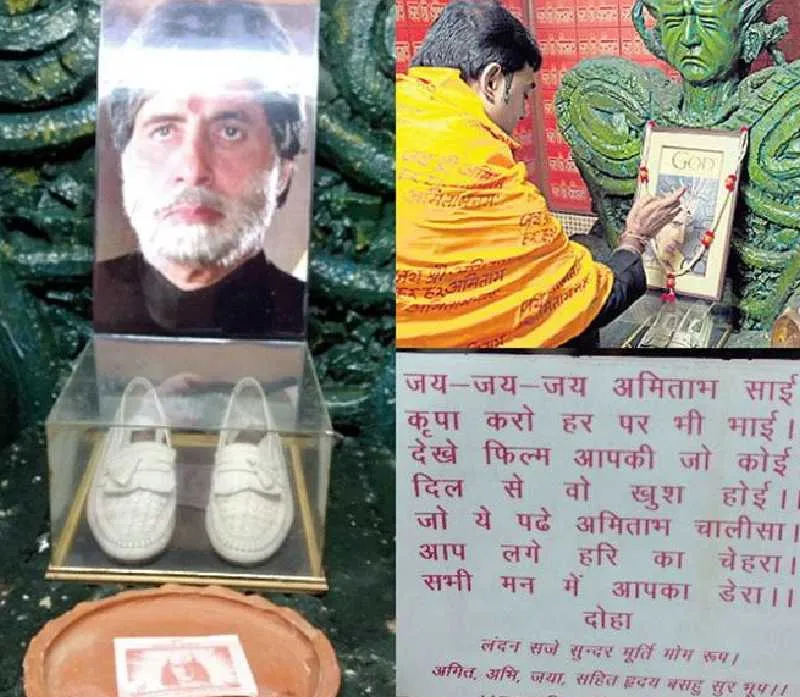 GOD
जय–जय–जय अमिताभ साई
कृपा करो हर पर भी भाई।
देखे फिल्म आपकी जो कोई
दिल से वो खुश होई।।
जो ये पढे अमिताभ चालीसा।
आप लगे हरि का चेहरा।
सभी मन में आपका डेरा।।
दोहा
लंदन सजे सुन्दर मूर्ति मोम रूप।
अमित, अभि, जया, सहित हृदय बसहु सुर भूप।।